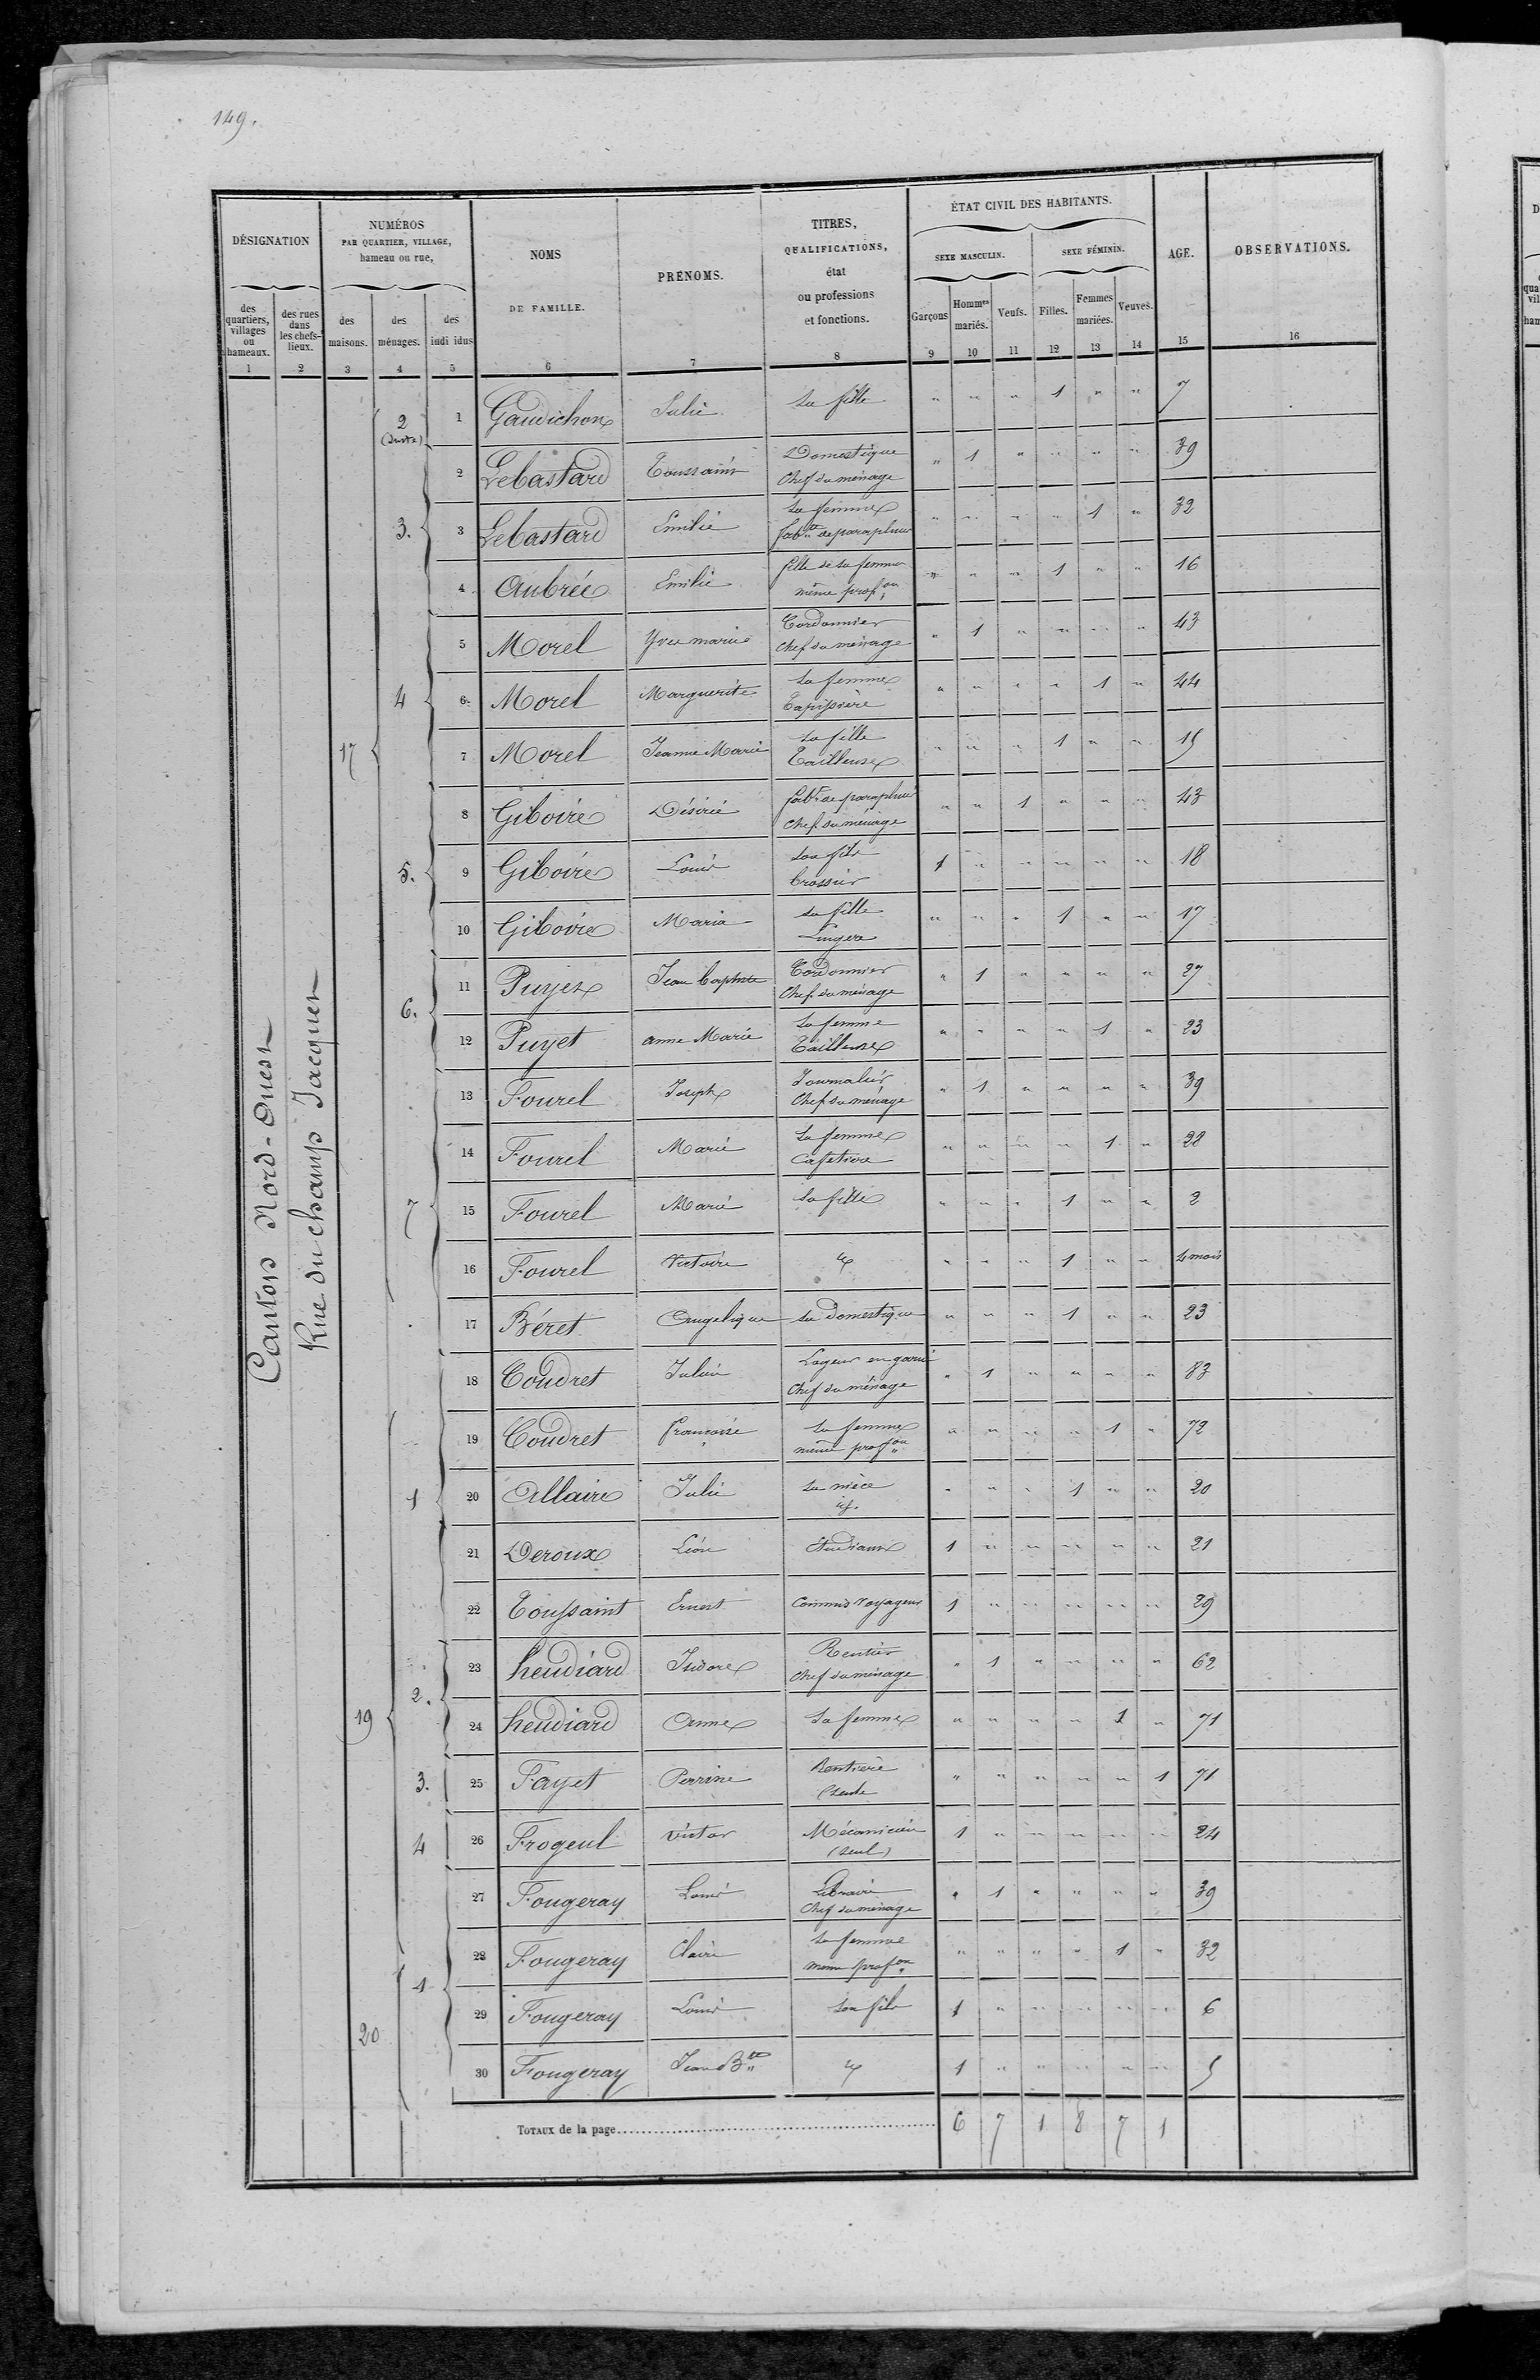 149.
DÉSIGNATION
NUMÉROS
PAR QUARTIER, VILLAGE,
hameau ou rue,
NOMS
DE FAMILLE.
PRÉNOMS.
TITRES,
QUALIFICATIONS,
état
ou professions
et fonctions.
ÉTAT CIVIL DES HABITANTS.
SEXE MASCULIN.
SEXE FÉMININ.
AGE.
OBSERVATIONS.
des quartiers, villages ou hameaux.
des rues dans les chefs-lieux.
des maisons.
des ménages.
des indi idus
Garçons
Hommes mariés.
Veufs.
Filles.
Femmes mariées.
Veuves.
1 2 3 4 5 6 7 8 9 10 11 12 13 14 15 16
Canton Nord-Ouest
Rue du champ Jacquet
2 (suite) 1 Gaudichon Julie Sa fille " " " 1 " " 7
17 3. 2 Lebastard Toussaint Domestique Chef du ménage " 1 " " " " 39
3 Lebastard Emilie Sa femme fabte de parapluies " " " " 1 " 32
4 Aubrée Emilie fille de sa femme même profon " " " 1 " " 16
4 5 Morel Yves marie Cordonnier Chef du ménage " 1 " " " " 43
6 Morel Marguerite Sa femme Tapissière " " " " 1 " 44
7 Morel Jeanne Marie Sa fille Tailleuse " " " 1 " " 15
5. 8 Giboire Désiré fabt de parapluie Chef du ménage " " 1 " " " 43
9 Giboire Louis Son fils brossier 1 " " " " " 18
10 Giboire Maria Sa fille Lingere " " " 1 " " 17
6. 11 Puyet Jean baptiste Cordonnier Chef du ménage " 1 " " " " 27
12 Puyet anne Marie Sa femme Tailleuse " " " " 1 " 23
7 13 Fourel Joseph Journalier Chef du ménage " 1 " " " " 39
14 Fourel Marie Sa femme Cafetière " " " " 1 " 28
15 Fourel Marie Sa fille " " " 1 " " 2
16 Fourel Victoire " " " 1 " " 4 mois
17 Béret Angelique sa Domestique " " " 1 " " 23
19 1 18 Coudret Julien Logeur en garni Chef du ménage " 1 " " " " 83
19 Coudret françoise Sa femme même profon " " " " 1 " 72
20 Allaire Julie Sa nièce id. " " " 1 " " 20
21 Deroux Léon Etudiant 1 " " " " " 21
22 Toussaint Ernest Commis Voyageur 1 " " " " " 29
2. 23 heudiard Isidore Rentier Chef du ménage " 1 " " " " 62
24 heudiard Anne Sa femme " " " " 1 " 71
3. 25 Fayet Perrine Rentière (Seule " " " " " 1 71
4 26 Frogeul Victor Mécanicien (seul) 1 " " " " " 24
20 1 27 Fougeray Louis Libraire Chef du ménage " 1 " " " " 39
28 Fougeray Claire Sa femme meme profon " " " " 1 " 32
29 Fougeray Louis Son fils 1 " " " " " 6
30 Fougeray Jean Bte 1 " " " " " 5
TOTAUX de la page 6 7 1 8 7 1